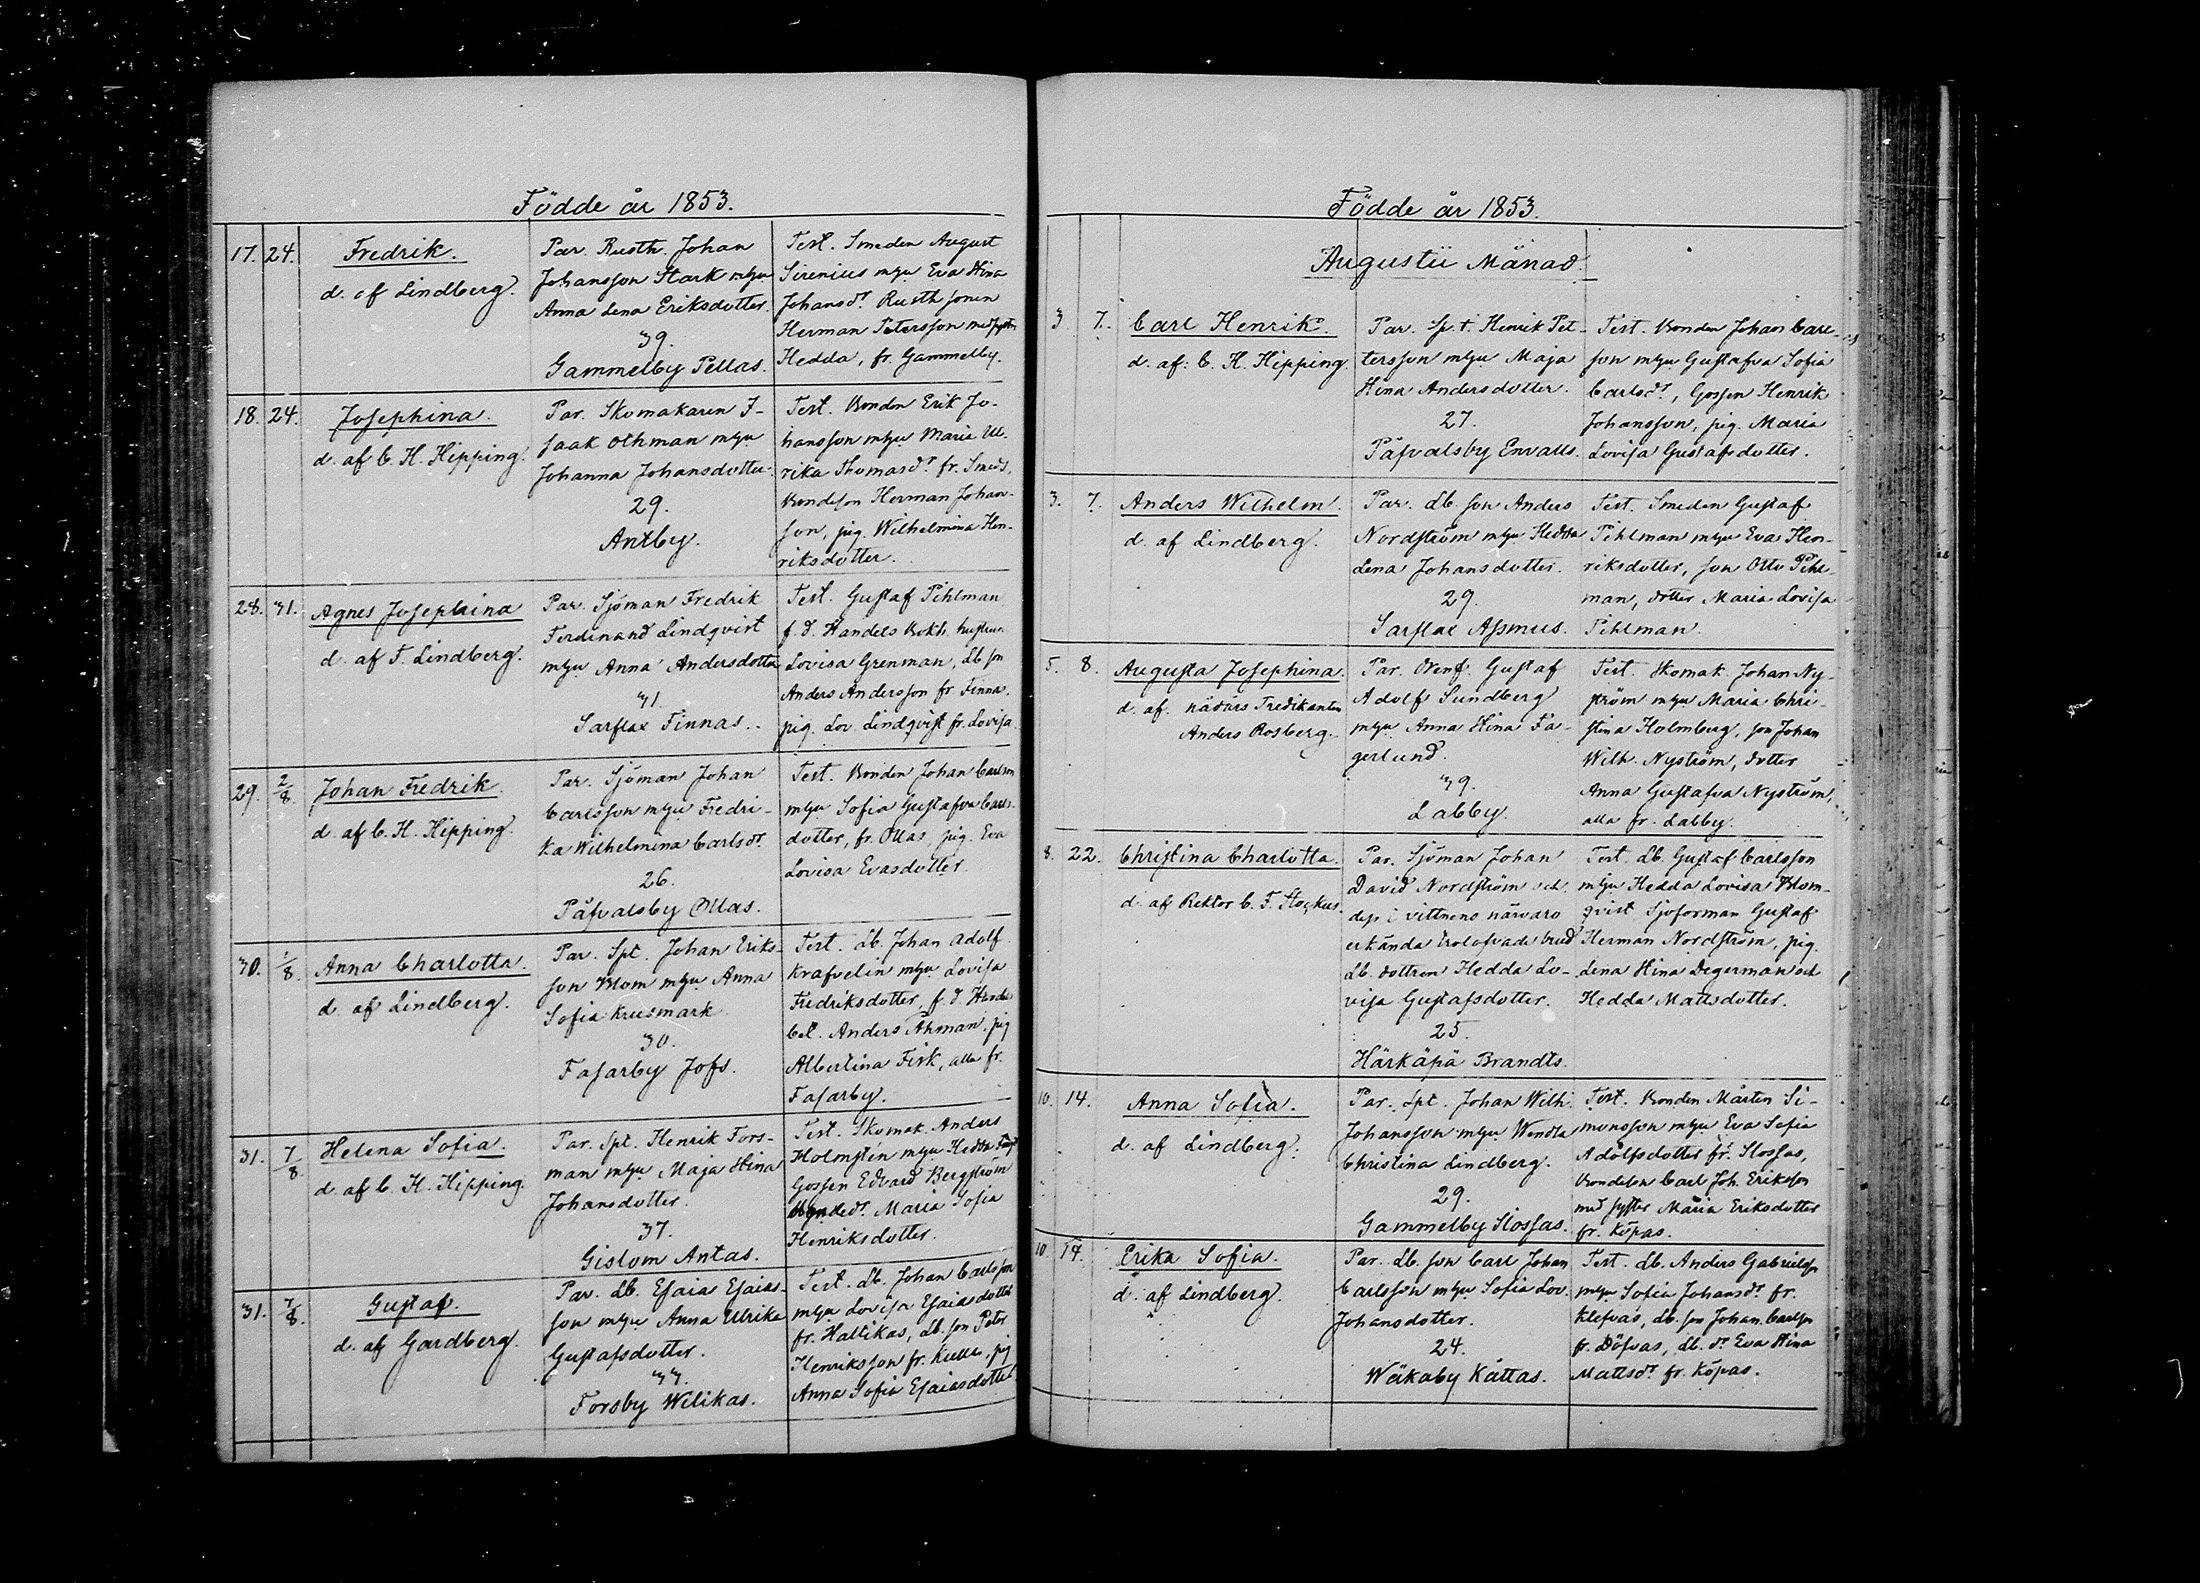 Födde år 1853.
17. 24. Fredrik.
d. af Lindberg.
Par. Rusth. Johan
Johansson Stark m hu
Anna Lena Eriksdotter.
39.
Gammelby Pellas.
Test. Smeden August
Sirenius m hu Eva Stina
Johansdr. Rusth sonen
Herman Petersson med syst.
Hedda, fr. Gammelby.
18. 24. Josephina.
d. af C. H. Hipping.
Par. Skomakaren I-
saak Othman m hu
Johanna Johansdotter.
29.
Antby.
Test. Bonden Erik Jo-
hansson m hu Maria Ul-
rika Thomasdr. fr. Smeds,
Bondeson Herman Johan-
son, pig. Wilhelmina Hen-
riksdotter.
28. 31. Agnes Josephina
d. af F. Lindberg.
Par. Sjöman Fredrik
Ferdinand Lindqvist
m hu Anna Andersdotter
31.
Sarflax Finnas.
Test. Gustaf Pihlman
f. d. Handels Bokh. hustrun
Lovisa Grenman, Lb son
Anders Andersson fr. Finnas,
pig. Lov. Lindqvist fr. Lovisa.
29. 2/8. Johan Fredrik.
d. af C. H. Hipping.
Par. Sjöman Johan
Carlsson m hu Fredri-
ka Wilhelmina Carlsdr.
26.
Påfvalsby Ollas.
Test. Bonden Johan Carlsson
m hu Sofia Gustafva Carls-
dotter, fr. Ollas, pig. Eva
Lovisa Evasdotter.
30. 1/8. Anna Charlotta.
d. af Lindberg.
Par. Spt. Johan Eriks-
son Blom m hu Anna
Sofia Krusmark
30.
Fasarby Jofs.
Test. Lb. Johan Adolf
Krafvelin m hu Lovisa
Fredriksdotter, f. d. Handels
Bet. Anders Åhman, pig
Albertina Fisk, alla fr.
Fasarby.
31. 7/8. Helena Sofia.
d. af C. H. Hipping.
Par. Spt. Henrik Fors-
man m hu Maja Stina
Johansdotter.
37.
Gislom Antas.
Test. Skomak. Anders
Holmstén m hu Hedda
Gossen Edvard Bergström
Maria Sofia
Henriksdotter.
31. 7/8. Gustaf.
d. af Gardberg.
Par. Lb. Esaia Esaias-
son m hu Anna Ulrika
Gustafsdotter.
33.
Forsby Wilikas.
Test. Lb. Johan Carlsson
m hu Lovisa Esaiasdotter
fr. Hallikas, Lb. son Peter
Henriksson fr. Kulla, pig
Anna Sofia Esaiasdotter
Födde år 1853.
Augustii Månad.
3. 7. Carl Henrik.
d. af: C. H. Hipping.
Par. Sp. t. Henrik Pet-
tersson m hu Maja
Stina Andersdotter.
27.
Påfvalsby Envalls.
Test. Bonden Johan Carl-
son m hu Gustafva Sofia
Carlsdr, Gossen Henrik
Johansson, pig. Maria
Lovisa Gustafsdotter.
3. 7. Anders Wilhelm.
d. af Lindberg.
Par. Lb. son Anders
Nordström m hu Hedda
Lena Johansdotter.
29.
Sarflax Asmus.
Test. Smeden Gustaf
Pihlman m hu Eva Hen-
riksdotter, son Otto Pihl-
man, dotter Maria Lovisa
Pihlman.
5. 8. Augusta Josephina.
d. af. nådårs Predikanten
Anders Rosberg.
Par. Gustaf
Adolf Sundberg
m hu Anna Stina Fa-
gerlund.
39.
Labby.
Test. Skomak. Johan Ny-
ström m hu Maria Chri-
stina Holmberg, son Johan
Wilh. Nyström, dotter
Anna Gustafva Nyström,
alla fr. Labby.
8. 22. Christina Charlotta.
d. af Rektor C. F. Stockus.
Par. Sjöman Johan
David Nordström och
dess i vittnens närvaro
erkända trolofvade brud
Lb. dottren Hedda Lo-
visa Gustafsdotter.
25.
Härkäpä Brandts.
Test. Lb. Gustaf Carlsson
m hu Hedda Lovisa Blom-
qvist Sjöforman Gustaf
Herman Nordström, pig.
Lena Stina Degerman och
Hedda Mattsdotter.
10. 14. Anna Sofia.
d. af Lindberg.
Par. Spt. Johan Wilh.
Johansson m hu Wendla
Christina Lindberg.
29.
Gammelby Slossas.
Test. Bonden Mårten Si-
monsson m hu Eva Sofia
Adolfsdotter fr. Slossas,
Bondeson Carl Joh. Eriksson
med syster Maria Eriksdotter
fr. Köpas.
10. 14. Erika Sofia.
d. af Lindberg.
Par. Lb. son Carl Johan
Carlsson m hu Sofia Lov.
Johansdotter.
24.
Wäkaby Kåttas.
Test. Lb. Anders Gabrielsson
m hu Sofia Johansdr fr.
Klefvas, Lb. son Johan Carlsson
fr. Döfvas, Lb. dr Eva Stina
Mattsdr. fr. Köpas.